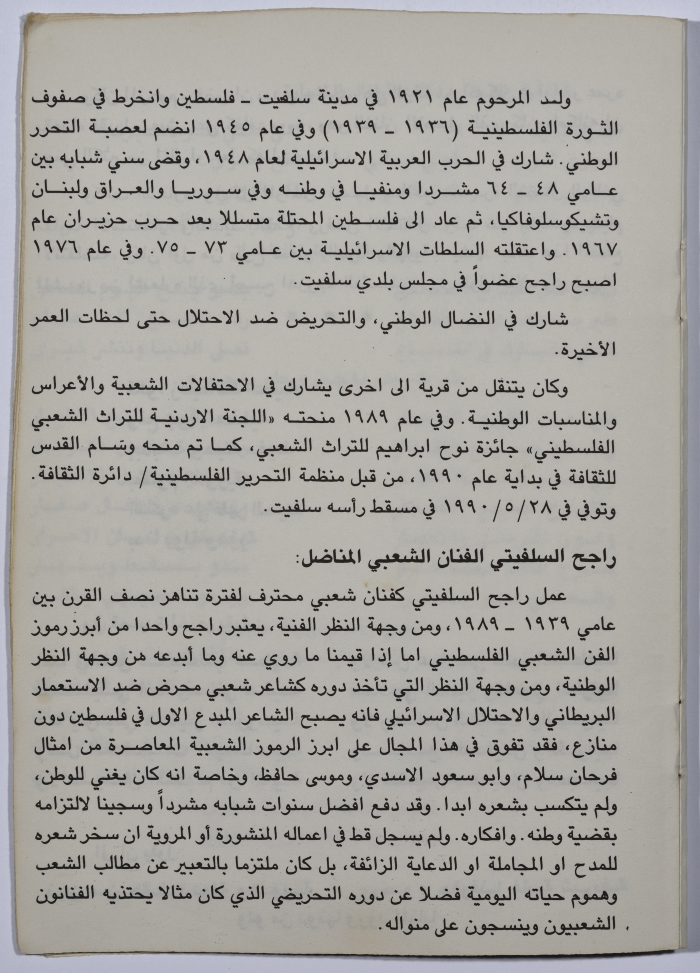 ولد المرحوم عام ١٩٢١ في مدينة سلفيت ـ فلسطين وانخرط في صفوف
الثورة الفلسطينية (١٩٣٦ ـ ١٩٣٩) وفي عام ١٩٤٥ انضم لعصبة التحرر
الوطني. شارك في الحرب العربية الاسرائيلية لعام ١٩٤٨، وقضى سني شبابه بين
عامي ٤٨ ـ ٦٤ مشردا ومنفيا في وطنه وفي سوريا والعراق ولبنان
وتشيكوسلوفاكيا، ثم عاد الى فلسطين المحتلة متسللا بعد حرب حزيران عام
١٩٦٧. واعتقلته السلطات الاسرائيلية بين عامي ٧٣ ـ ٧٥. وفي عام ١٩٧٦
اصبح راجح عضواً في مجلس بلدي سلفيت.
شارك في النضال الوطني، والتحريض ضد الاحتلال حتى لحظات العمر
الأخيرة.
وكان يتنقل من قرية الى اخرى يشارك في الاحتفالات الشعبية والأعراس
والمناسبات الوطنية. وفي عام ١٩٨٩ منحته «اللجنة الاردنية للتراث الشعبي
الفلسطيني» جائزة نوح ابراهيم للتراث الشعبي، كما تم منحه وسام القدس
للثقافة في بداية عام ١٩٩٠، من قبل منظمة التحرير الفلسطينية/ دائرة الثقافة.
وتوفي في ٢٨/ ٥/ ١٩٩٠ في مسقط رأسه سلفيت.
راجح السلفيتي الفنان الشعبي المناضل:
عمل راجح السلفيتي كفنان شعبي محترف لفترة تناهز نصف القرن بين
عامي ١٩٣٩ ـ ١٩٨٩، ومن وجهة النظر الفنية، يعتبر راجح واحدا من أبرز رموز
الفن الشعبي الفلسطيني اما إذا قيمنا ما روي عنه وما أبدعه من وجهة النظر
الوطنية، ومن وجهة النظر التي تأخذ دوره كشاعر شعبي محرض ضد الاستعمار
البريطاني والاحتلال الاسرائيلي فانه يصبح الشاعر المبدع الاول في فلسطين دون
منازع، فقد تفوق في هذا المجال على ابرز الرموز الشعبية المعاصرة من امثال
فرحان سلام، وابو سعود الاسدي، وموسى حافظ، وخاصة انه كان يغني للوطن،
ولم يتكسب بشعره ابدا. وقد دفع افضل سنوات شبابه مشرداً وسجينا لالتزامه
بقضية وطنه. وافكاره. ولم يسجل قط في اعماله المنشورة أو المروية ان سخر شعره
للمدح او المجاملة او الدعاية الزائفة، بل كان ملتزما بالتعبير عن مطالب الشعب
وهموم حياته اليومية فضلا عن دوره التحريضي الذي كان مثالا يحتذيه الفنانون
الشعبيون وينسجون على منواله.